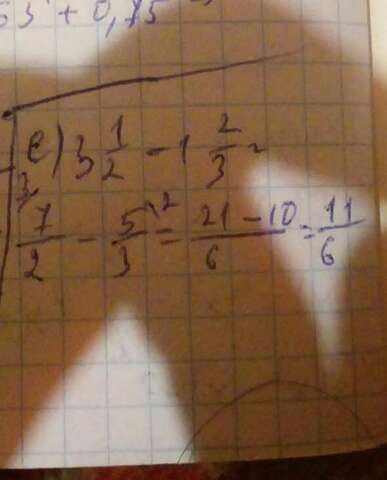 + 0,75
e) 3 1/2 - 1 2/3 =
7/2 ³ - 5/3 ² = 21-10/6 = 11/6